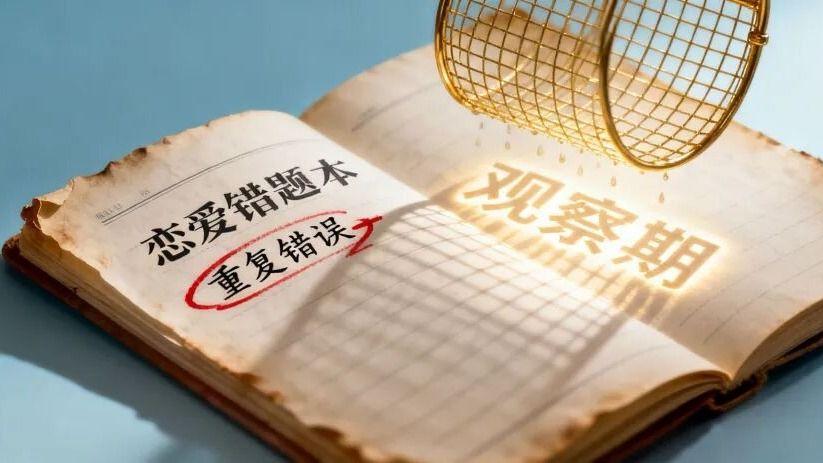 恋爱错题本
重复错误
观察期